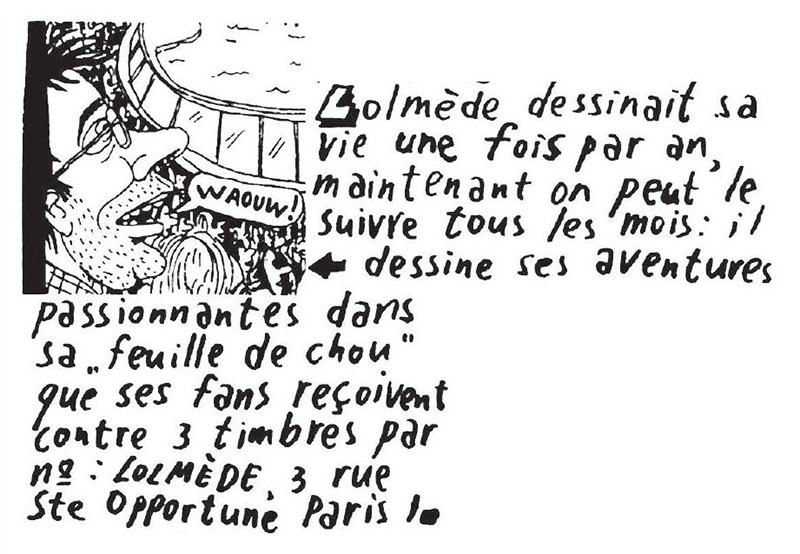 WAOUW!
Lolmède dessinait sa
vie une fois par an,
maintenant on peut le
suivre tous les mois: il
← dessine ses aventures
passionnantes dans
sa „feuille de chou"
que ses fans reçoivent
contre 3 timbres par
nº: LOLMÈDE, 3 rue
Ste Opportune Paris 1.